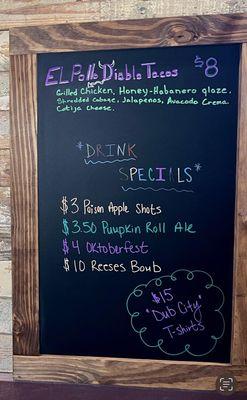 El Pollo Diablo Tacos $8
Grilled Chicken, Honey-Habanero glaze,
Shredded Cabage, Jalapenos, Avacado Crema
Cotija Cheese.
*DRINK
SPECIALS*
$3 Poison Apple Shots
$3.50 Pumpkin Roll Ale
$4 Oktoberfest
$10 Reeses Bomb
$15
"Dub City"
T-shirts